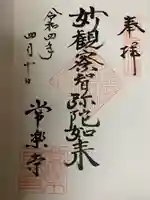 奉拝
妙観察智弥陀如来
常楽寺
令和四年
四月十日